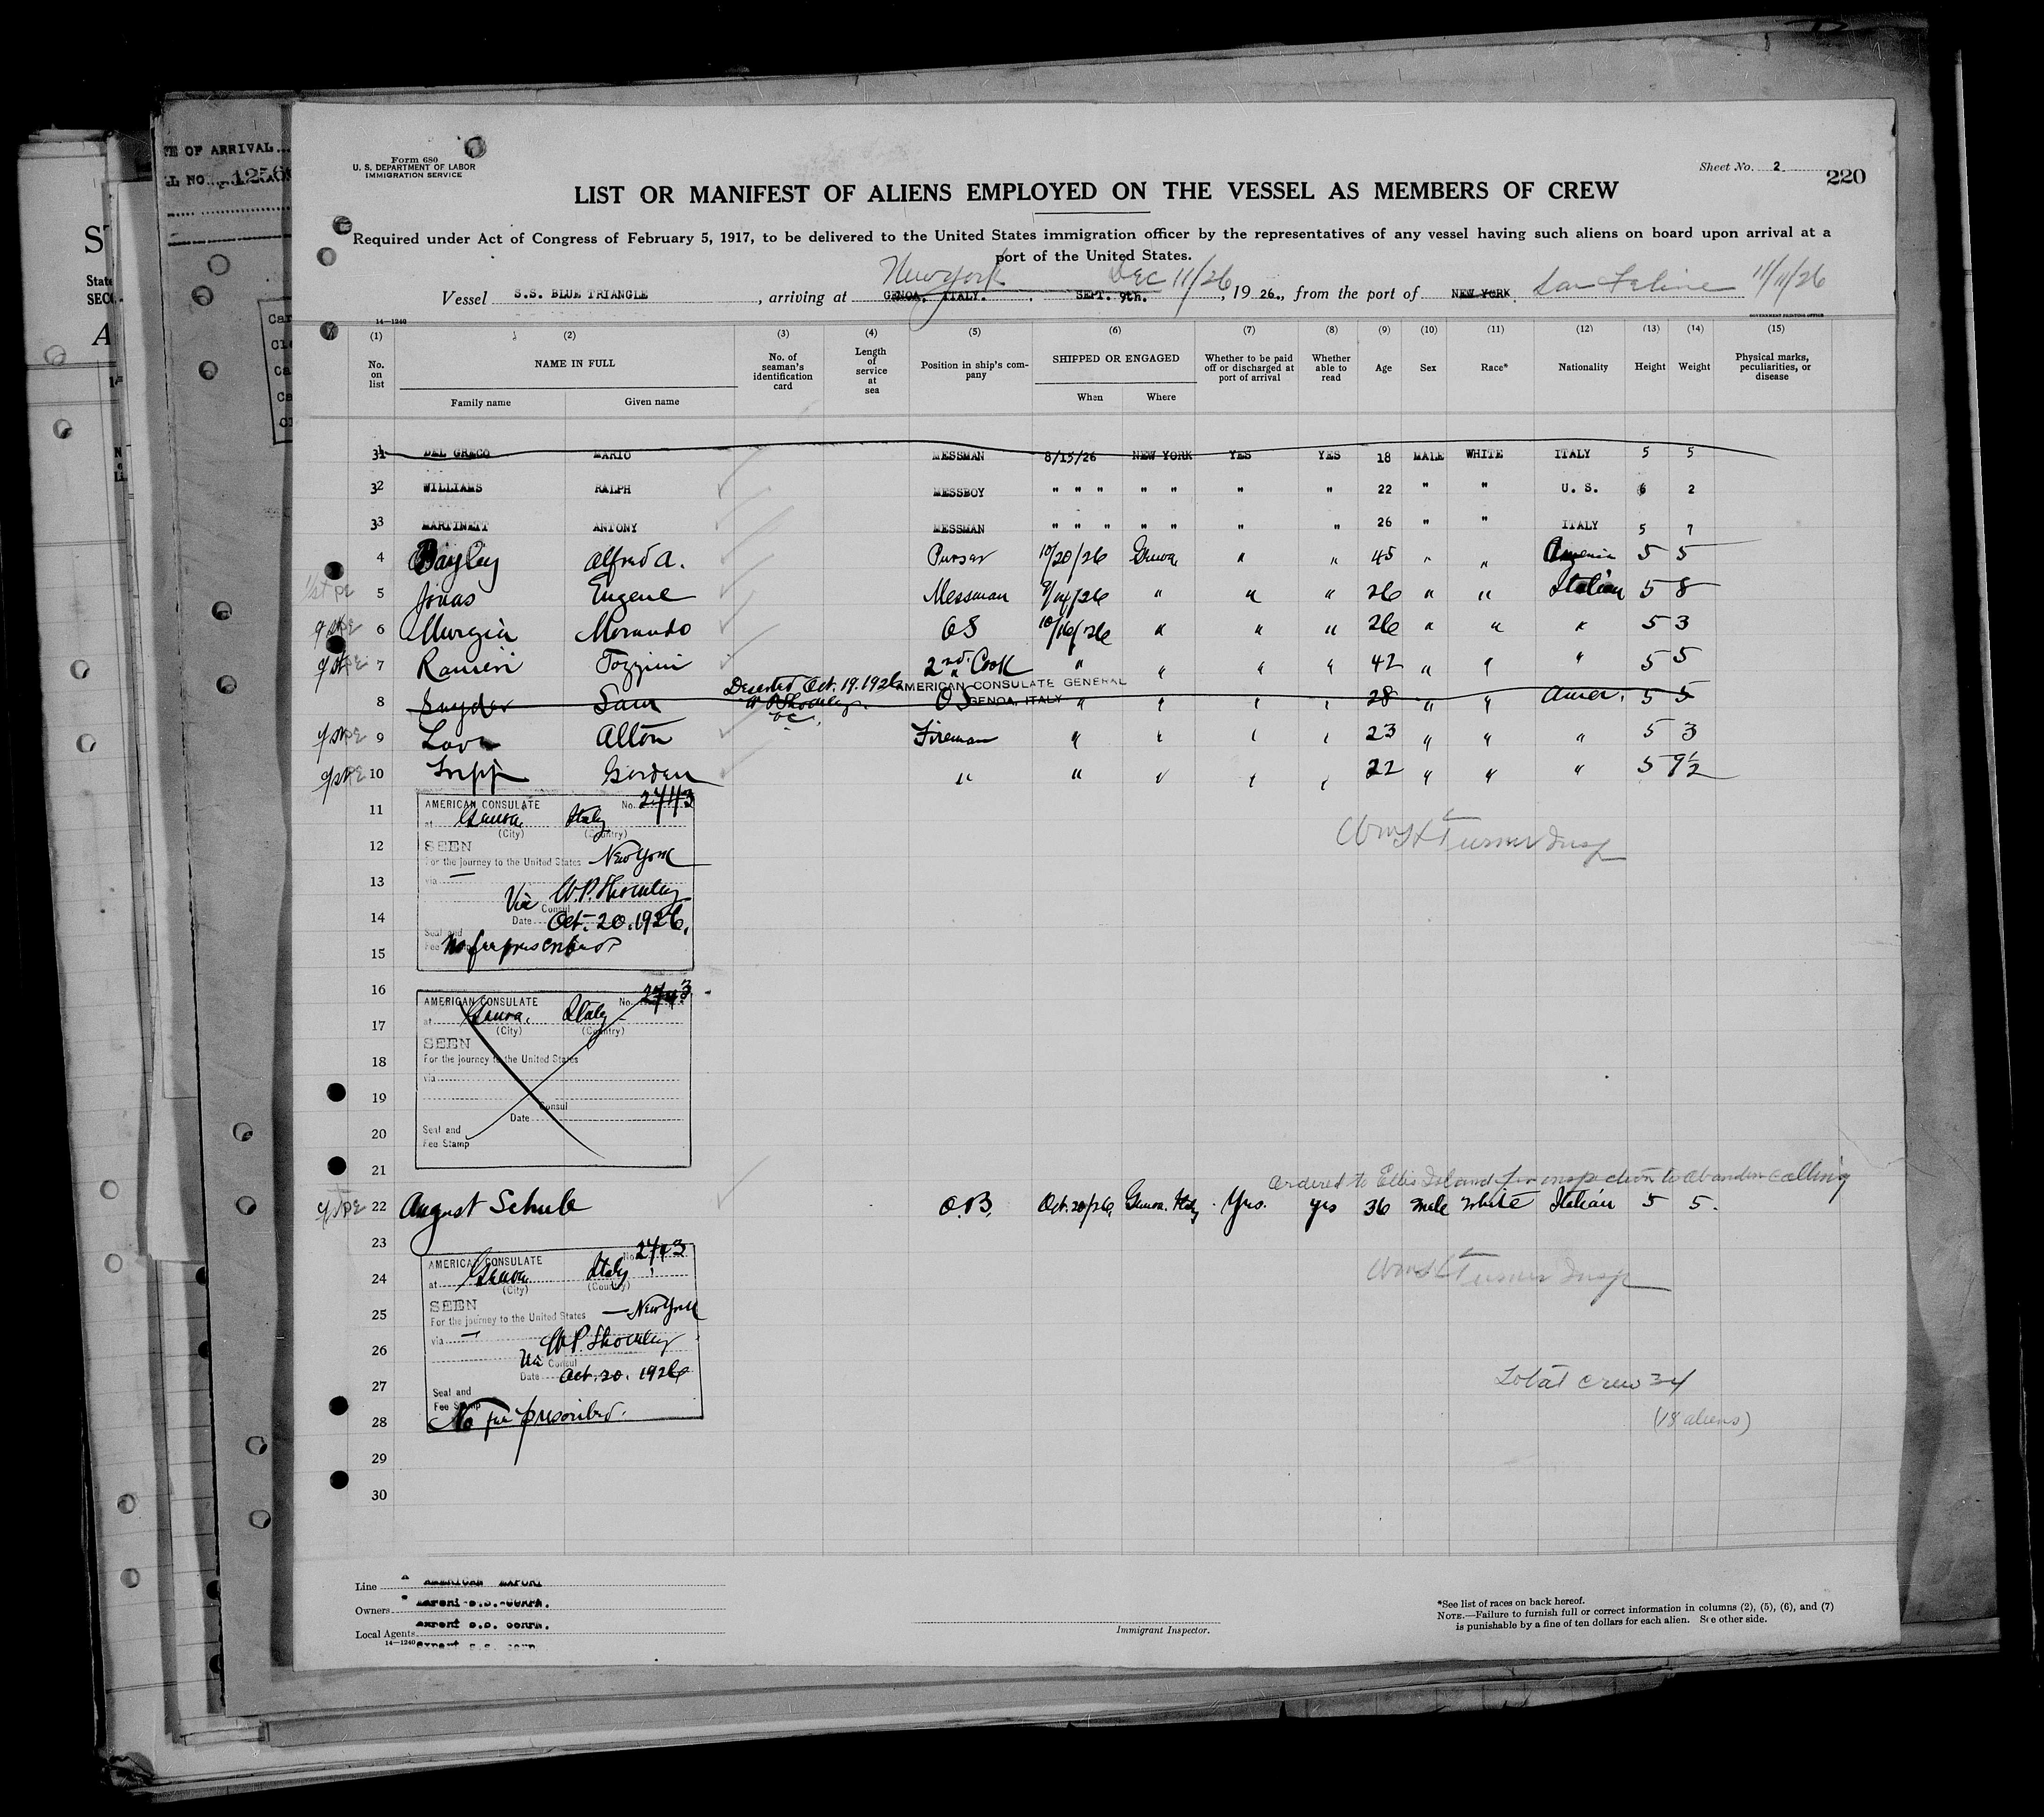 TE OF ARRIVAL
LL NO. 1256
State
SECO
Form 680
U. S. DEPARTMENT OF LABOR
IMMIGRATION SERVICE
Sheet No. 2
220
LIST OR MANIFEST OF ALIENS EMPLOYED ON THE VESSEL AS MEMBERS OF CREW
Required under Act of Congress of February 5, 1917, to be delivered to the United States immigration officer by the representatives of any vessel having such aliens on board upon arrival at a
port of the United States.
New York Dec 11/26 11/11/26
Vessel S.S. BLUE TRIANGLE, arriving at GENOA, ITALY. SEPT. 9th., 1926., from the port of NEW YORK. San Feline
14—1240
GOVERNMENT PRINTING OFFICE
(1) (2) (3) (4) (5) (6) (7) (8) (9) (10) (11) (12) (13) (14) (15)
No. on list NAME IN FULL No. of seaman's identification card Length of service at sea Position in ship's company SHIPPED OR ENGAGED Whether to be paid off or discharged at port of arrival Whether able to read Age Sex Race* Nationality Height Weight Physical marks, peculiarities, or disease
Family name Given name When Where
31 DEL GRECO MARIO MESSMAN 8/15/26 NEW YORK YES YES 18 MALE WHITE ITALY 5 5
32 WILLIAMS RALPH MESSBOY " " " " " " " 22 " " U. S. 6 2
33 MARTINETT ANTONY MESSMAN " " " " " " " 26 " " ITALY 5 7
4 Bayley Alfred A. Purser 10/20/26 Genoa " " 45 " " America 5 5
5 Jonas Eugene Messman 9/14/26 " " " 26 " " Italian 5 8
6 Murgia Morando OS 10/16/26 " " " 26 " " " 5 3
7 Ranieri Tozzini 2nd Cook " " " " 42 " " " 5 5
Deserted Oct. 19. 1926 AMERICAN CONSULATE GENERAL
8 Snyder Sam OS GENOA, ITALY " " " " 28 " " Amer. 5 5
W P Shockley
V.C.
9 Love Alton Fireman " " " " 23 " " " 5 3
10 Tripp Gorden " " " " " 22 " " " 5 9½
11
12
13
14
15
AMERICAN CONSULATE No. 2743
at Genoa, Italy
(City) (Country)
SEEN
For the journey to the United States New York
via —
Vice W.P. Shockley
Consul
Date Oct. 20. 1926.
Seal and
Fee Stamp
No fee prescribed
Wm H Turner Insp
16
17
18
19
20
21
AMERICAN CONSULATE No. 2743
at Genoa, Italy
(City) (Country)
SEEN
For the journey to the United States
via
Consul
Date
Seal and
Fee Stamp
ordered to Ellis Island for inspection to abandon calling
22 August Schule O.B. Oct. 20/26, Genoa. Italy Yes. yes 36 male white Italian 5 5.
23
24
25
26
27
28
29
30
AMERICAN CONSULATE No. 2743
at Genoa Italy
(City) (Country)
SEEN
For the journey to the United States — New York
via —
W.P. Shockley
Vice Consul
Date Oct. 20. 1926
Seal and
Fee Stamp
No fee prescribed.
Wm H Turner Insp
Total crew 34
(18 aliens)
Line AMERICAN EXPORT
Owners export S.S. CORP.
export S.S. CORP.
Local Agents
14—1240 export S.S. corp.
Immigrant Inspector.
*See list of races on back hereof.
NOTE.—Failure to furnish full or correct information in columns (2), (5), (6), and (7)
is punishable by a fine of ten dollars for each alien. See other side.